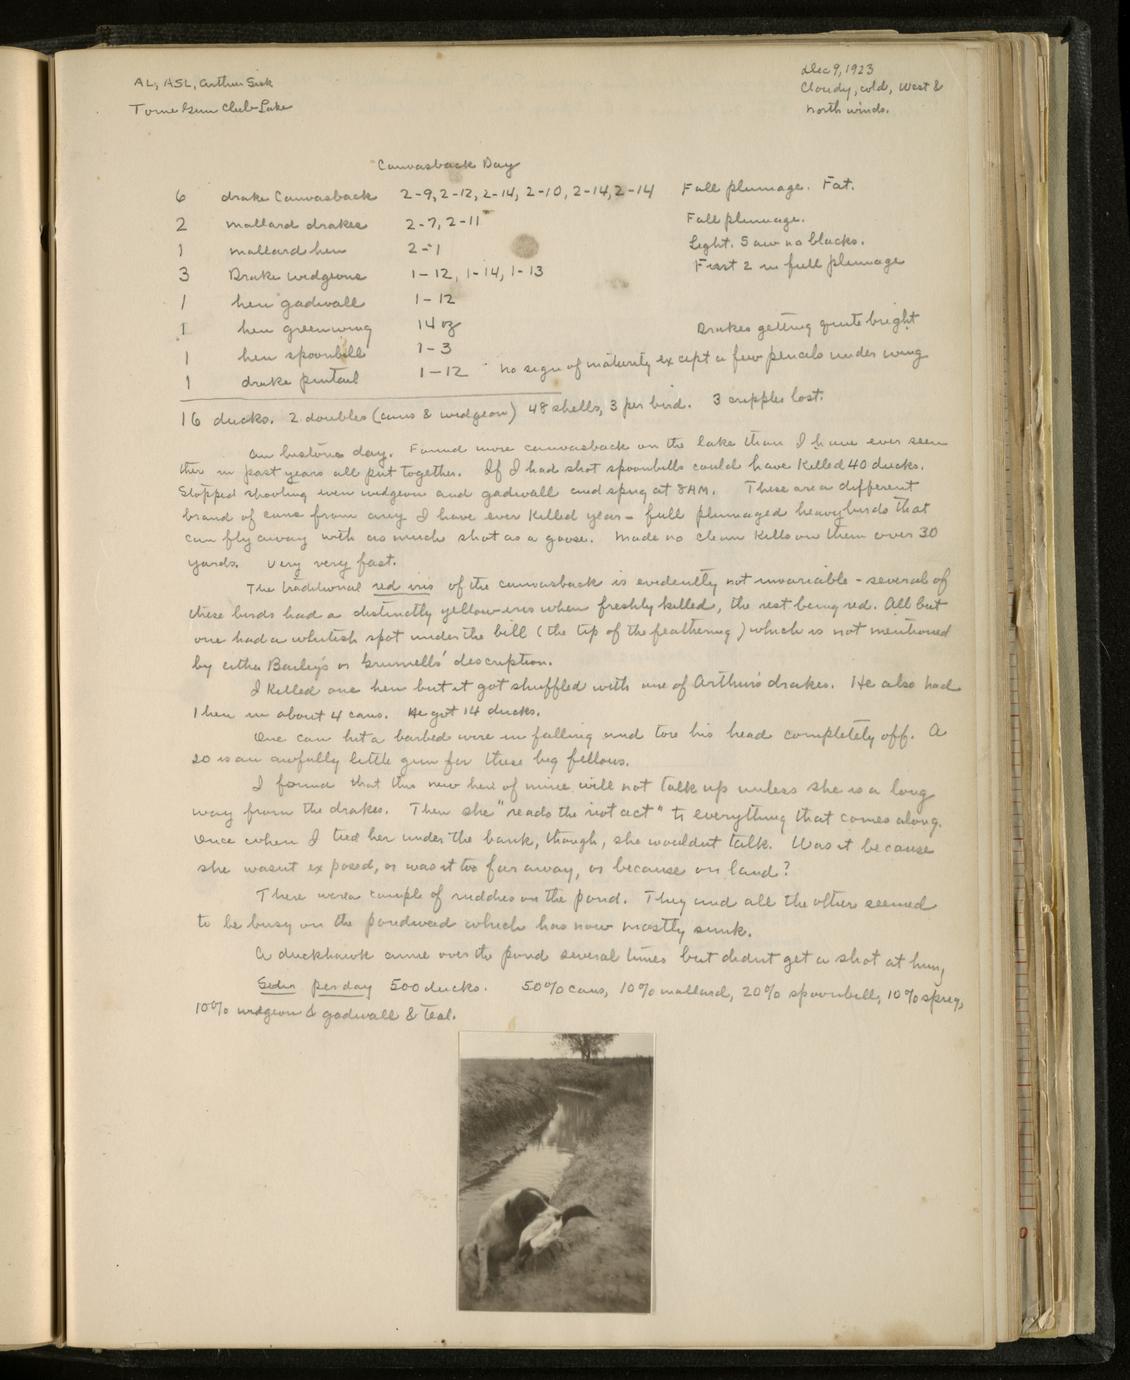 AL, ASL, Arthur Sisk
Tome Gun Club Lake
Dec 9, 1923
Cloudy, cold, West &
north winds.
Canvasback Day
6 drake Canvasback 2-9, 2-12, 2-14, 2-10, 2-14, 2-14 Full plumage. Fat.
2 mallard drakes 2-7, 2-11 Full plumage.
1 mallard hen 2-1 Light. Saw no blacks.
3 Drake widgeons 1-12, 1-14, 1-13 First 2 in full plumage
1 hen gadwall 1-12
1 hen greenwing 14 oz Drakes getting quite bright
1 hen spoonbill 1-3
1 drake pintail 1-12 no sign of maturity except a few pencils under wing
16 ducks. 2 doubles (cans & widgeon) 48 shells, 3 per bird. 3 cripples lost.
An historic day. Found more canvasback on the lake than I have ever seen
there in past years all put together. If I had shot spoonbills could have killed 40 ducks.
Stopped shooting even widgeon and gadwall and sprig at 8AM. These are a different
brand of cans from any I have ever killed year - full plumaged heavy birds that
can fly away with as much shot as a goose. Made no clean kills on them over 30
yards. Very very fast.
The traditional red iris of the canvasback is evidently not invariable - several of
these birds had a distinctly yellow iris when freshly killed, the rest being red. All but
one had a whitish spot under the bill (the tip of the feathering) which is not mentioned
by either Bailey's or Grinnells' description.
I killed one hen but it got shuffled with one of Arthur's drakes. He also had
1 hen in about 4 cans. He got 14 ducks.
One can hit a barbed wire in falling and tore his head completely off. A
20 is an awfully little gun for these big fellows.
I found that this new hen of mine will not talk up unless she is a long
way from the drakes. Then she "reads the riot act" to everything that comes along.
Once when I tied her under the bank, though, she wouldnt talk. Was it because
she wasnt exposed, or was it too far away, or because on land?
There were a couple of ruddies on the pond. They and all the other seemed
to be busy on the pondweed which has now mostly sunk.
A duckhawk came over the pond several times but didnt get a shot at him,
Seen per day 500 ducks. 50% cans, 10% mallard, 20% spoonbill, 10% sprig,
10% widgeon & gadwall & teal.